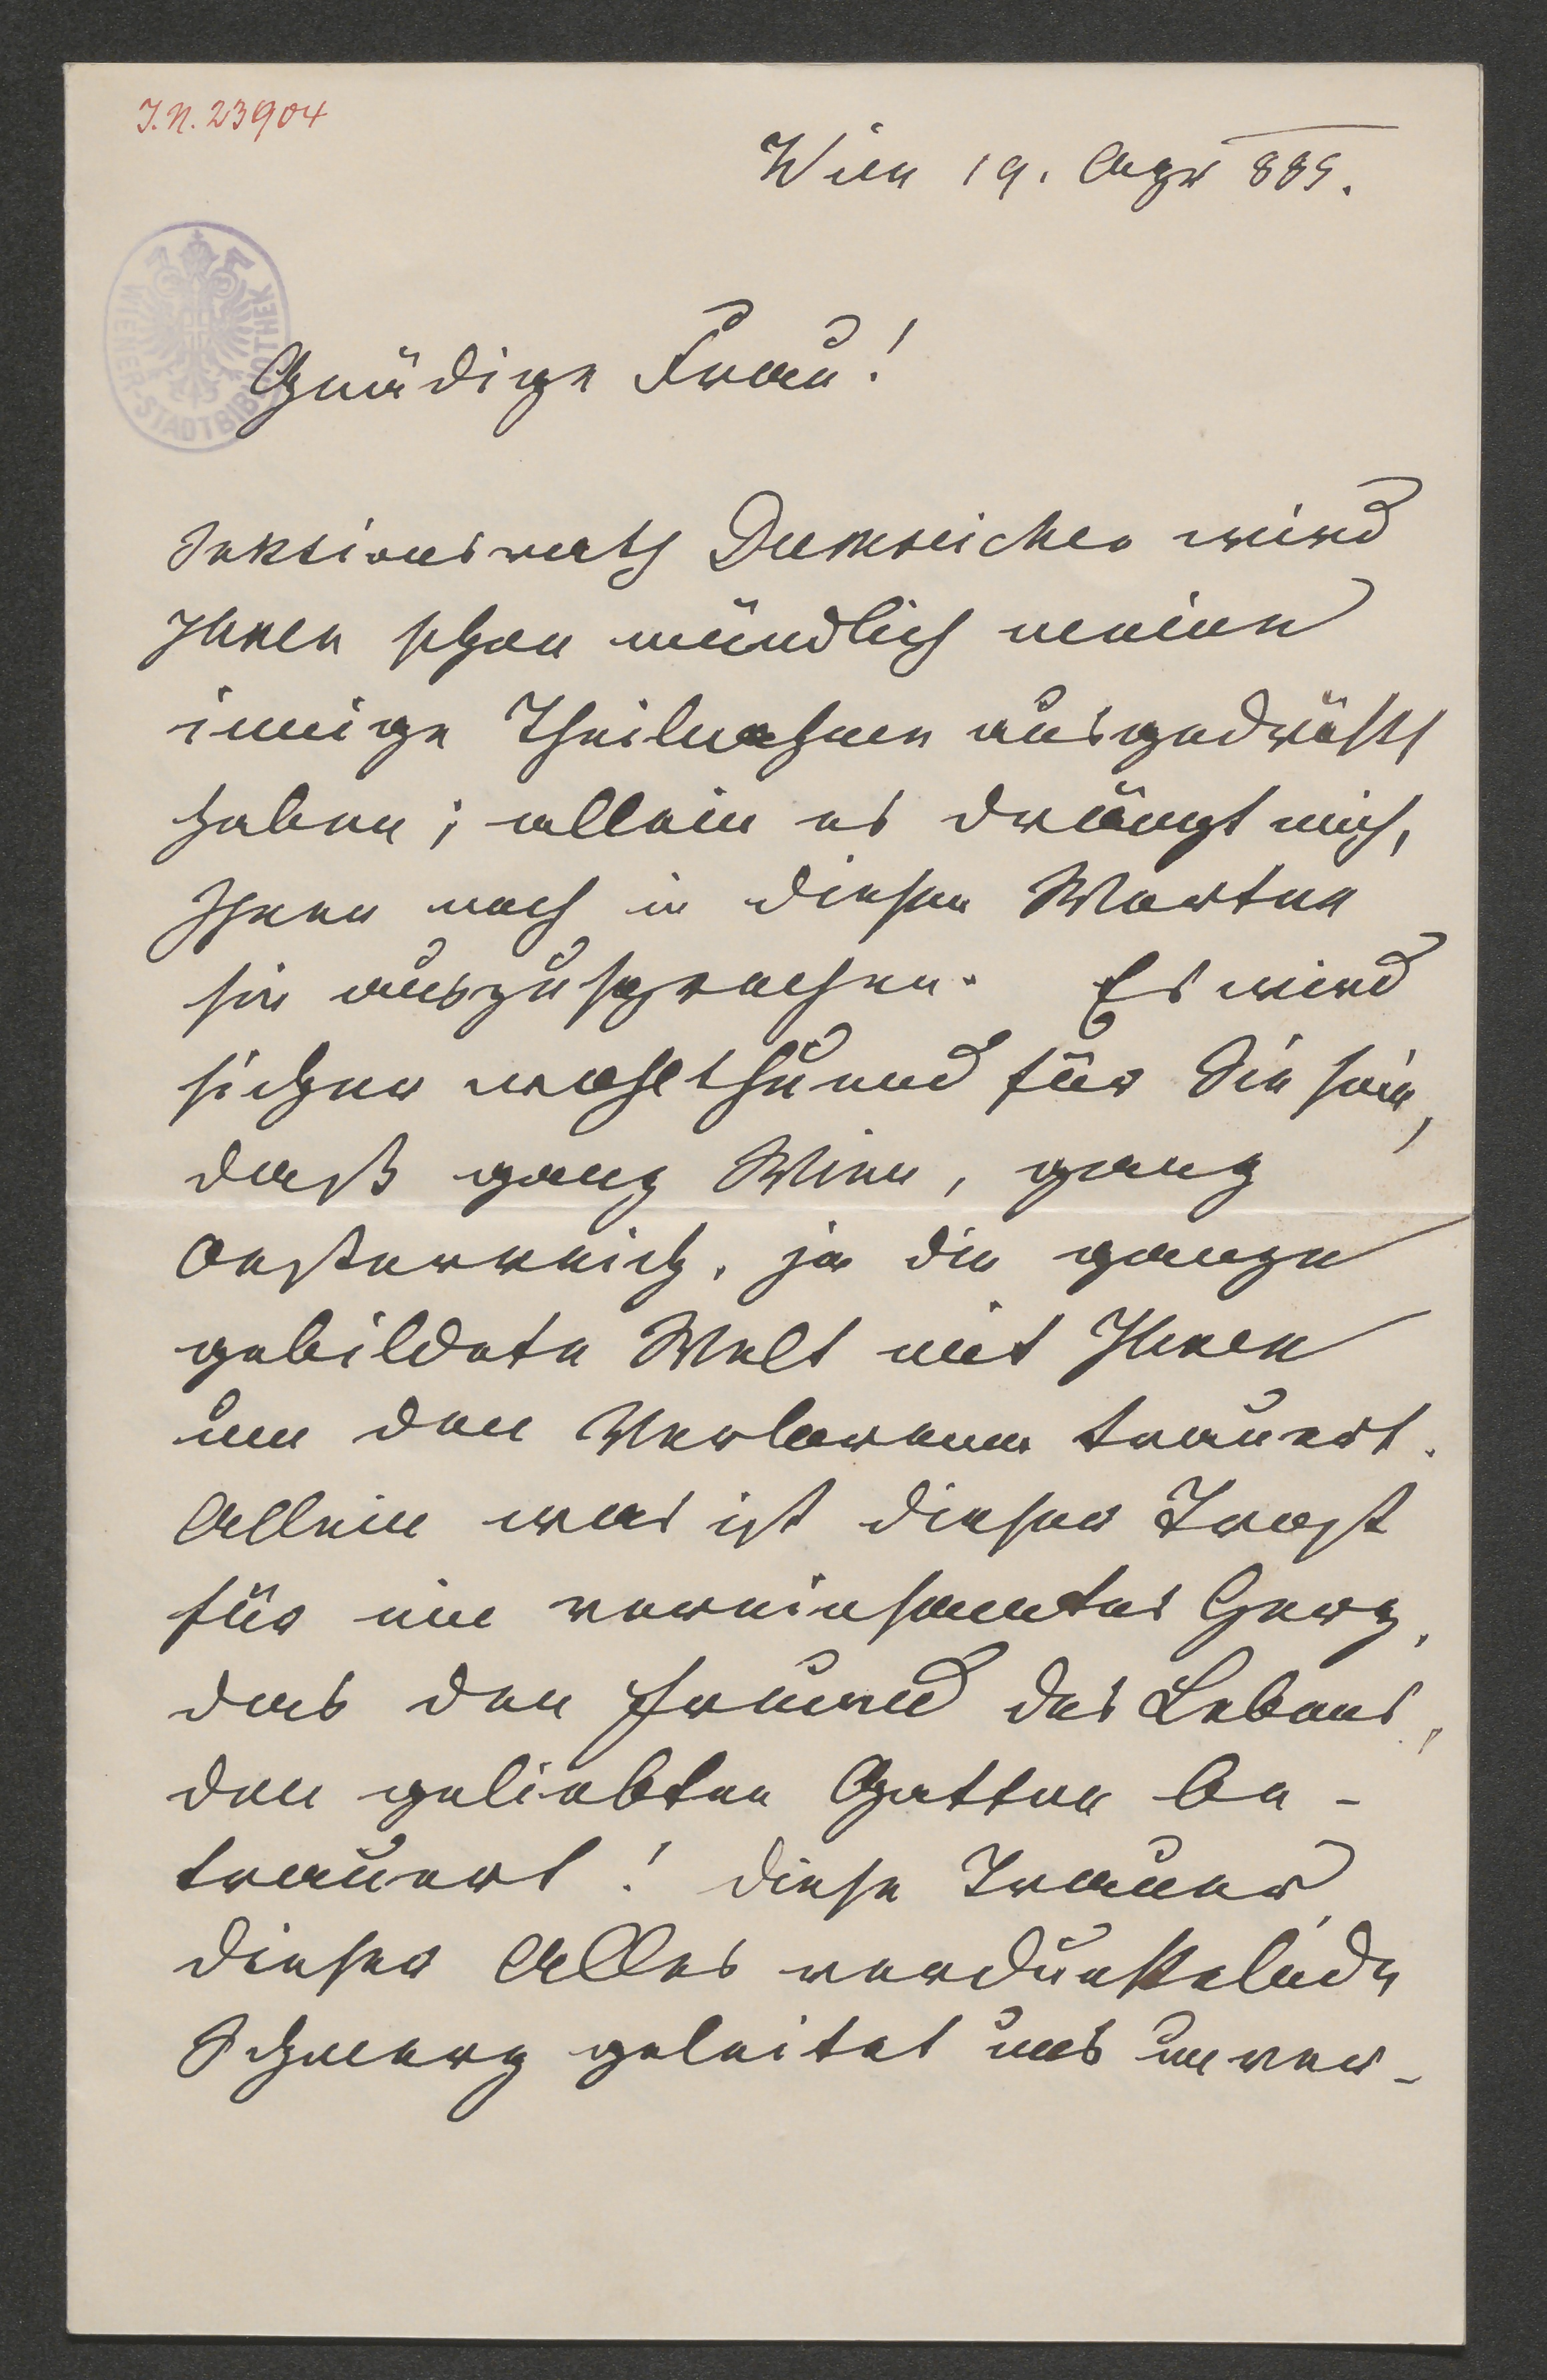 I.N. 23904
Wien 19. Apr 885.
WIENER-STADTBIBLIOTHEK
Gnädige Frau!
Sektionsrath Dumreicher wird
Ihnen schon mündlich meine
innige Theilnahme ausgedrückt
haben; allein es drängt mich,
Ihnen noch in diesen Worten
sie auszusprechen. Es wird
sicher wohlthuend für Sie sein,
daß ganz Wien, ganz
Oesterreich, ja die ganze
gebildete Welt mit Ihnen
um den Verlorenen trauert.
Allein was ist dieser Trost
für ein vereinsamtes Herz,
das den Freund des Lebens,
den geliebten Gatten be-
trauert! Diese Trauer,
dieser Alles verdunkelnde
Schmerz geleitet uns unver-